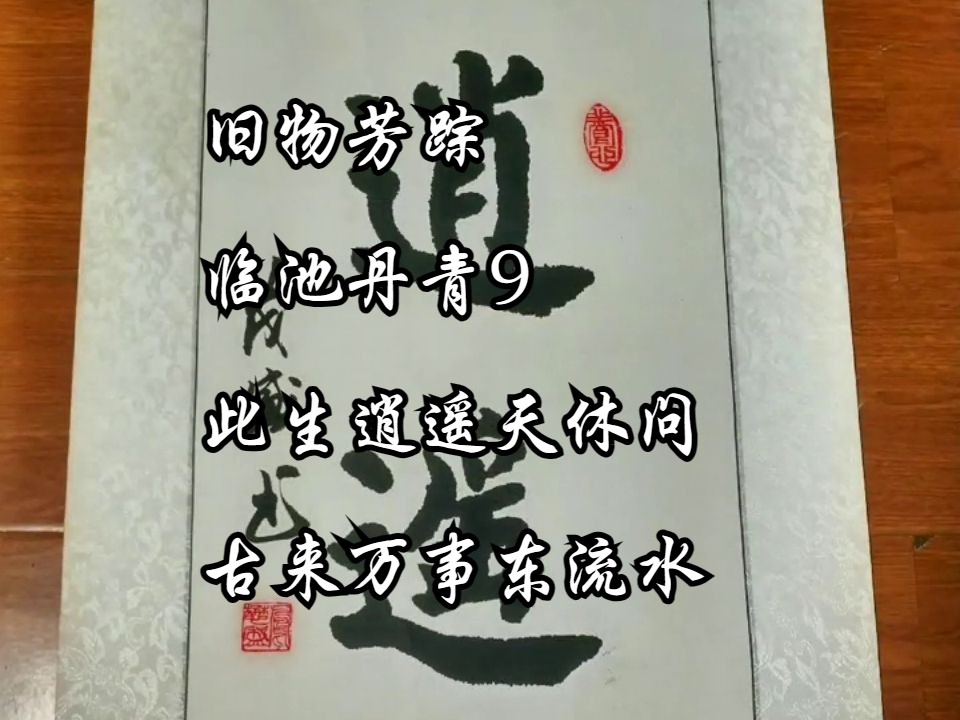 旧物芳踪
临池丹青9
此生逍遥天休问
古来万事东流水
逍遥